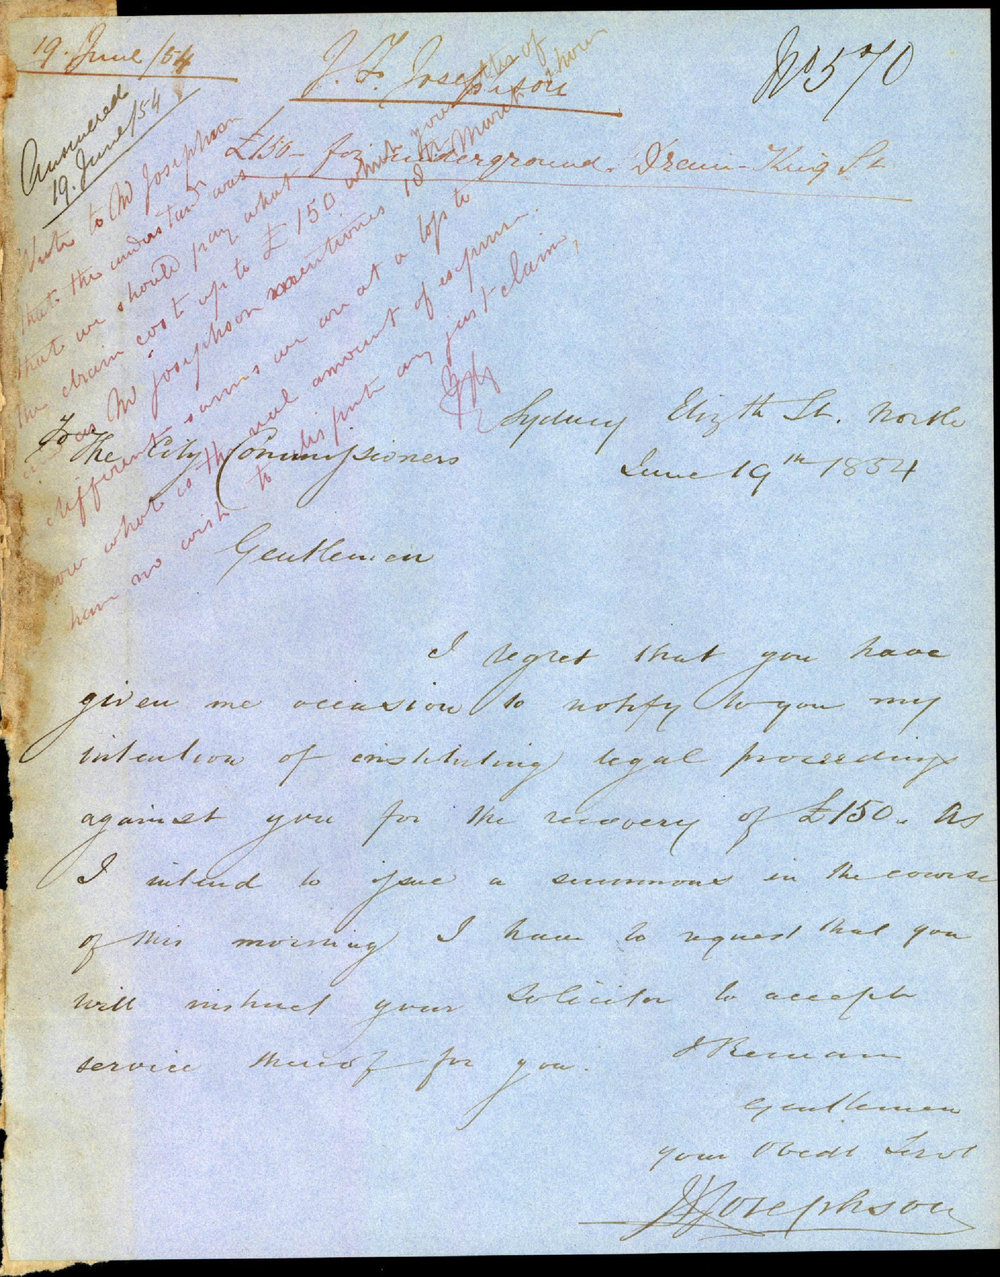 19. June /54
J. F. Josephson
No 570
Answered
19. June /54
£150 - for underground. Drain - King St
Write to Mr Josephson
that the understand was
that we should pay what
the drain cost up to £150 which you
as Mr Josephson mentiones 18 March
different sums we are at a loss to
what is the real amount of expense.
have no wish to dispute any just claim,
To
The City Commissioners
Sydney Elizth St. North
June 19th 1854
Gentlemen
I regret that you have
given me occasion to notify to you my
intention of instituting legal proceedings
against you for the recovery of £150. As
I intend to issue a summons in the course
of this morning I have to request that you
will instruct your Solicitor to accept
service thereof for you. I Remain
Gentlemen
your Obedt Servt
J F Josephson